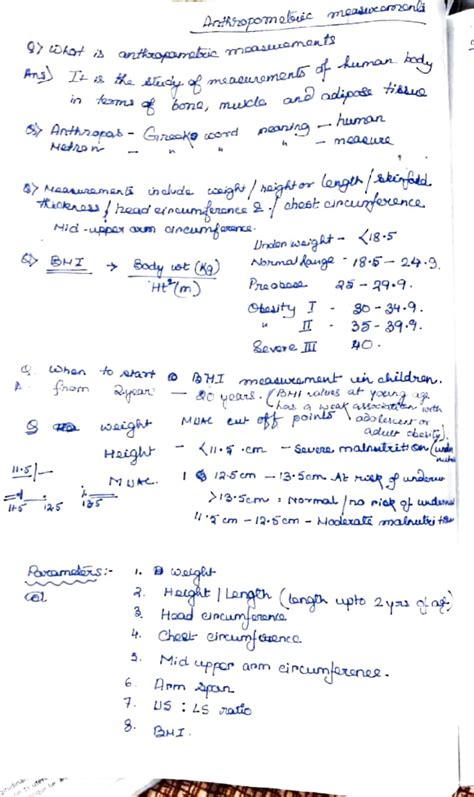 Anthropometric measurements
Q) What is anthropometric measurements
Ans) It is the study of measurements of human body
in terms of bone, muscle and adipose tissue
Q) Anthropos - Greeko word meaning - human
Metron - " " " - measure
Q) Measurements include weight / height or length / skinfold
thickness / head circumference & / chest circumference
Mid-upper arm circumference.
Under weight - <18.5
Q) BMI → Body wt (Kg) / Ht²(m)
Normal range - 18.5 - 24.9.
Pre obese 25 - 29.9.
Obesity I - 30 - 34.9.
" II - 35 - 39.9.
Severe III 40.
Q. When to start BMI measurement in children.
A. from 2 year - 20 years. (BMI values at young age
has a weak association with
adolescent or
adult obesity).
Q weight MUAC cut off points
Height - <11.5 cm - Severe malnutrition
MUAC. 12.5cm - 13.5cm At risk of
>13.5cm = Normal / no risk of
11.5cm - 12.5cm - Moderate
11.5/-
11.5 12.5 13.5
Parameters:- 1. Weight
2. Height / Length (length upto 2 yrs of age)
3. Head circumference
4. Chest circumference
5. Mid upper arm circumference.
6. Arm span
7. US : LS ratio
8. BMI.